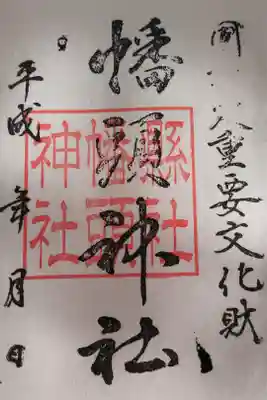 重要文化財
幡頭神社
縣社
幡頭
神社
平成 年 月 日